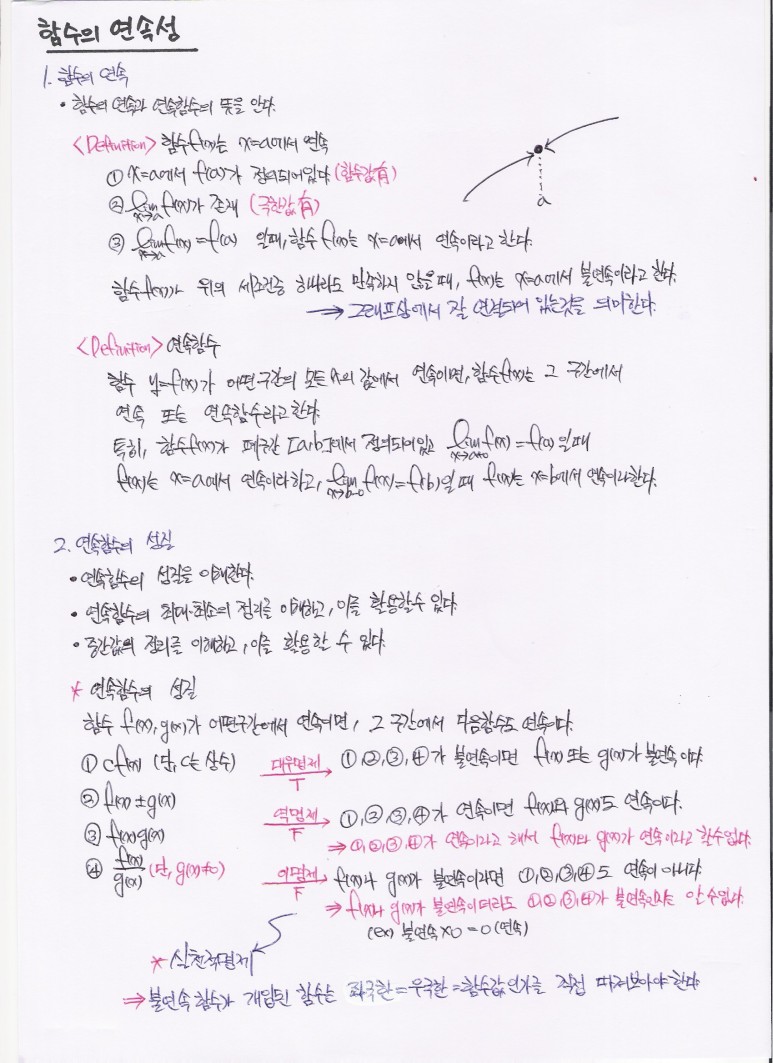 함수의 연속성
1. 함수의 연속
• 함수의 연속과 연속함수의 뜻을 안다.
<Definition> 함수 f(x)는 x=a에서 연속
① x=a에서 f(a)가 정의되어있다 (함수값 有)
② lim x→a f(x)가 존재 (극한값 有)
③ lim x→a f(x) = f(a) 일때, 함수 f(x)는 x=a에서 연속이라고 한다.
a
함수 f(x)가 위의 세조건중 하나라도 만족하지 않을때, f(x)는 x=a에서 불연속이라고 한다.
→ 그래프상에서 잘 연결되어 있는것을 의미한다.
<Definition> 연속함수
함수 y=f(x)가 어떤구간의 모든 x의 값에서 연속이면, 함수 f(x)는 그 구간에서
연속 또는 연속함수라고 한다.
특히, 함수 f(x)가 폐구간 [a,b]에서 정의되어있고 lim x→a+0 f(x) = f(a) 일때
f(x)는 x=a에서 연속이라하고, lim x→b-0 f(x) = f(b)일 때 f(x)는 x=b에서 연속이라한다.
2. 연속함수의 성질
• 연속함수의 성질을 이해한다.
• 연속함수의 최대·최소의 정리를 이해하고, 이를 활용할수 있다.
• 중간값의 정리를 이해하고, 이를 활용할 수 있다.
* 연속함수의 성질
함수 f(x), g(x)가 어떤구간에서 연속이면, 그 구간에서 다음함수도 연속이다.
① cf(x) (단, c는 상수) 대우명제 T → ①,②,③,④가 불연속이면 f(x) 또는 g(x)가 불연속이다.
② f(x) ± g(x)
③ f(x)g(x) 역명제 F → ①,②,③,④가 연속이면 f(x)와 g(x)도 연속이다.
⇒ ①,②,③,④가 연속이라고 해서 f(x)와 g(x)가 연속이라고 할수없다.
④ f(x)/g(x) (단, g(x)≠0) 이명제 F → f(x)나 g(x)가 불연속이라면 ①,②,③,④도 연속이 아니다.
⇒ f(x)나 g(x)가 불연속이더라도 ①,②,③,④가 불연속인지는 알 수없다.
(ex) 불연속×0=0 (연속)
* 실전측명제
⇒ 불연속 함수가 개입된 함수는 좌극한=우극한=함수값인가를 직접 따져보아야 한다.